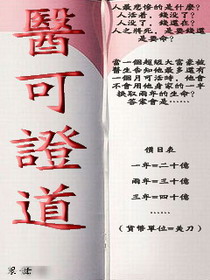 醫可證道
人最悲慘的是什麼?
人活著,錢沒了?
人沒了,錢還在?
人之將死,是要錢還
是要命?
當一個超級大富豪被
醫生告知他最多還有
一個月可活時,他會
不會用他身家的一半
換取兩年的生命?
答案會是……
價目表
一年=二十億
兩年=三十億
三年=四十億
……
(貨幣單位=美刀)